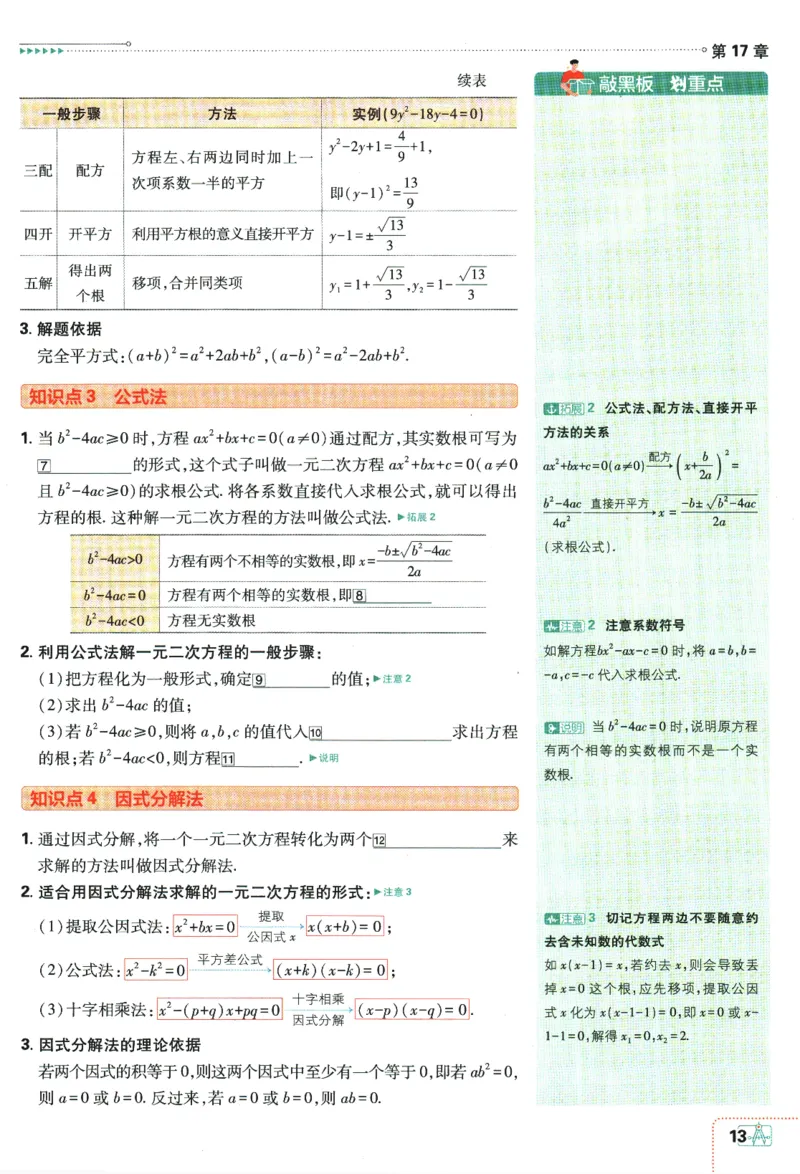 第 17 章
续表
一般步骤 方法 实例(9y²-18y-4=0)
三配 配方 方程左、右两边同时加上一次项系数一半的平方 y²-2y+1=4/9+1,
即(y-1)²=13/9
四开 开平方 利用平方根的意义直接开平方 y-1=±√13/3
五解 得出两个根 移项,合并同类项 y₁=1+√13/3,y₂=1-√13/3
3. 解题依据
完全平方式:(a+b)²=a²+2ab+b²,(a-b)²=a²-2ab+b².
知识点 3 公式法
1. 当 b²-4ac≥0 时,方程 ax²+bx+c=0(a≠0)通过配方,其实数根可写为
7________的形式,这个式子叫做一元二次方程 ax²+bx+c=0(a≠0
且 b²-4ac≥0)的求根公式. 将各系数直接代入求根公式,就可以得出
方程的根. 这种解一元二次方程的方法叫做公式法. ▶拓展 2
b²-4ac>0 方程有两个不相等的实数根,即 x=(-b±√(b²-4ac))/2a
b²-4ac=0 方程有两个相等的实数根,即8________
b²-4ac<0 方程无实数根
2. 利用公式法解一元二次方程的一般步骤:
(1)把方程化为一般形式,确定9________的值;▶注意 2
(2)求出 b²-4ac 的值;
(3)若 b²-4ac≥0,则将 a,b,c 的值代入10______________求出方程
的根;若 b²-4ac<0,则方程11________. ▶说明
知识点 4 因式分解法
1. 通过因式分解,将一个一元二次方程转化为两个12____________来
求解的方法叫做因式分解法.
2. 适合用因式分解法求解的一元二次方程的形式:▶注意 3
(1)提取公因式法: x²+bx=0 提取公因式 x → x(x+b)=0 ;
(2)公式法: x²-k²=0 平方差公式 → (x+k)(x-k)=0 ;
(3)十字相乘法: x²-(p+q)x+pq=0 十字相乘因式分解 → (x-p)(x-q)=0 .
3. 因式分解法的理论依据
若两个因式的积等于 0,则这两个因式中至少有一个等于 0,即若 ab²=0,
则 a=0 或 b=0. 反过来,若 a=0 或 b=0,则 ab=0.
敲黑板 划重点
拓展 2 公式法、配方法、直接开平
方法的关系
ax²+bx+c=0(a≠0) 配方 → (x+b/2a)²=
(b²-4ac)/4a² 直接开平方 → x=(-b±√(b²-4ac))/2a
(求根公式).
注意 2 注意系数符号
如解方程bx²-ax-c=0 时,将 a=b,b=
-a,c=-c 代入求根公式.
说明 当 b²-4ac=0 时,说明原方程
有两个相等的实数根而不是一个实
数根.
注意 3 切记方程两边不要随意约
去含未知数的代数式
如 x(x-1)=x,若约去 x,则会导致丢
掉 x=0 这个根,应先移项,提取公因
式 x 化为 x(x-1-1)=0,即 x=0 或 x-
1-1=0,解得 x₁=0,x₂=2.
13